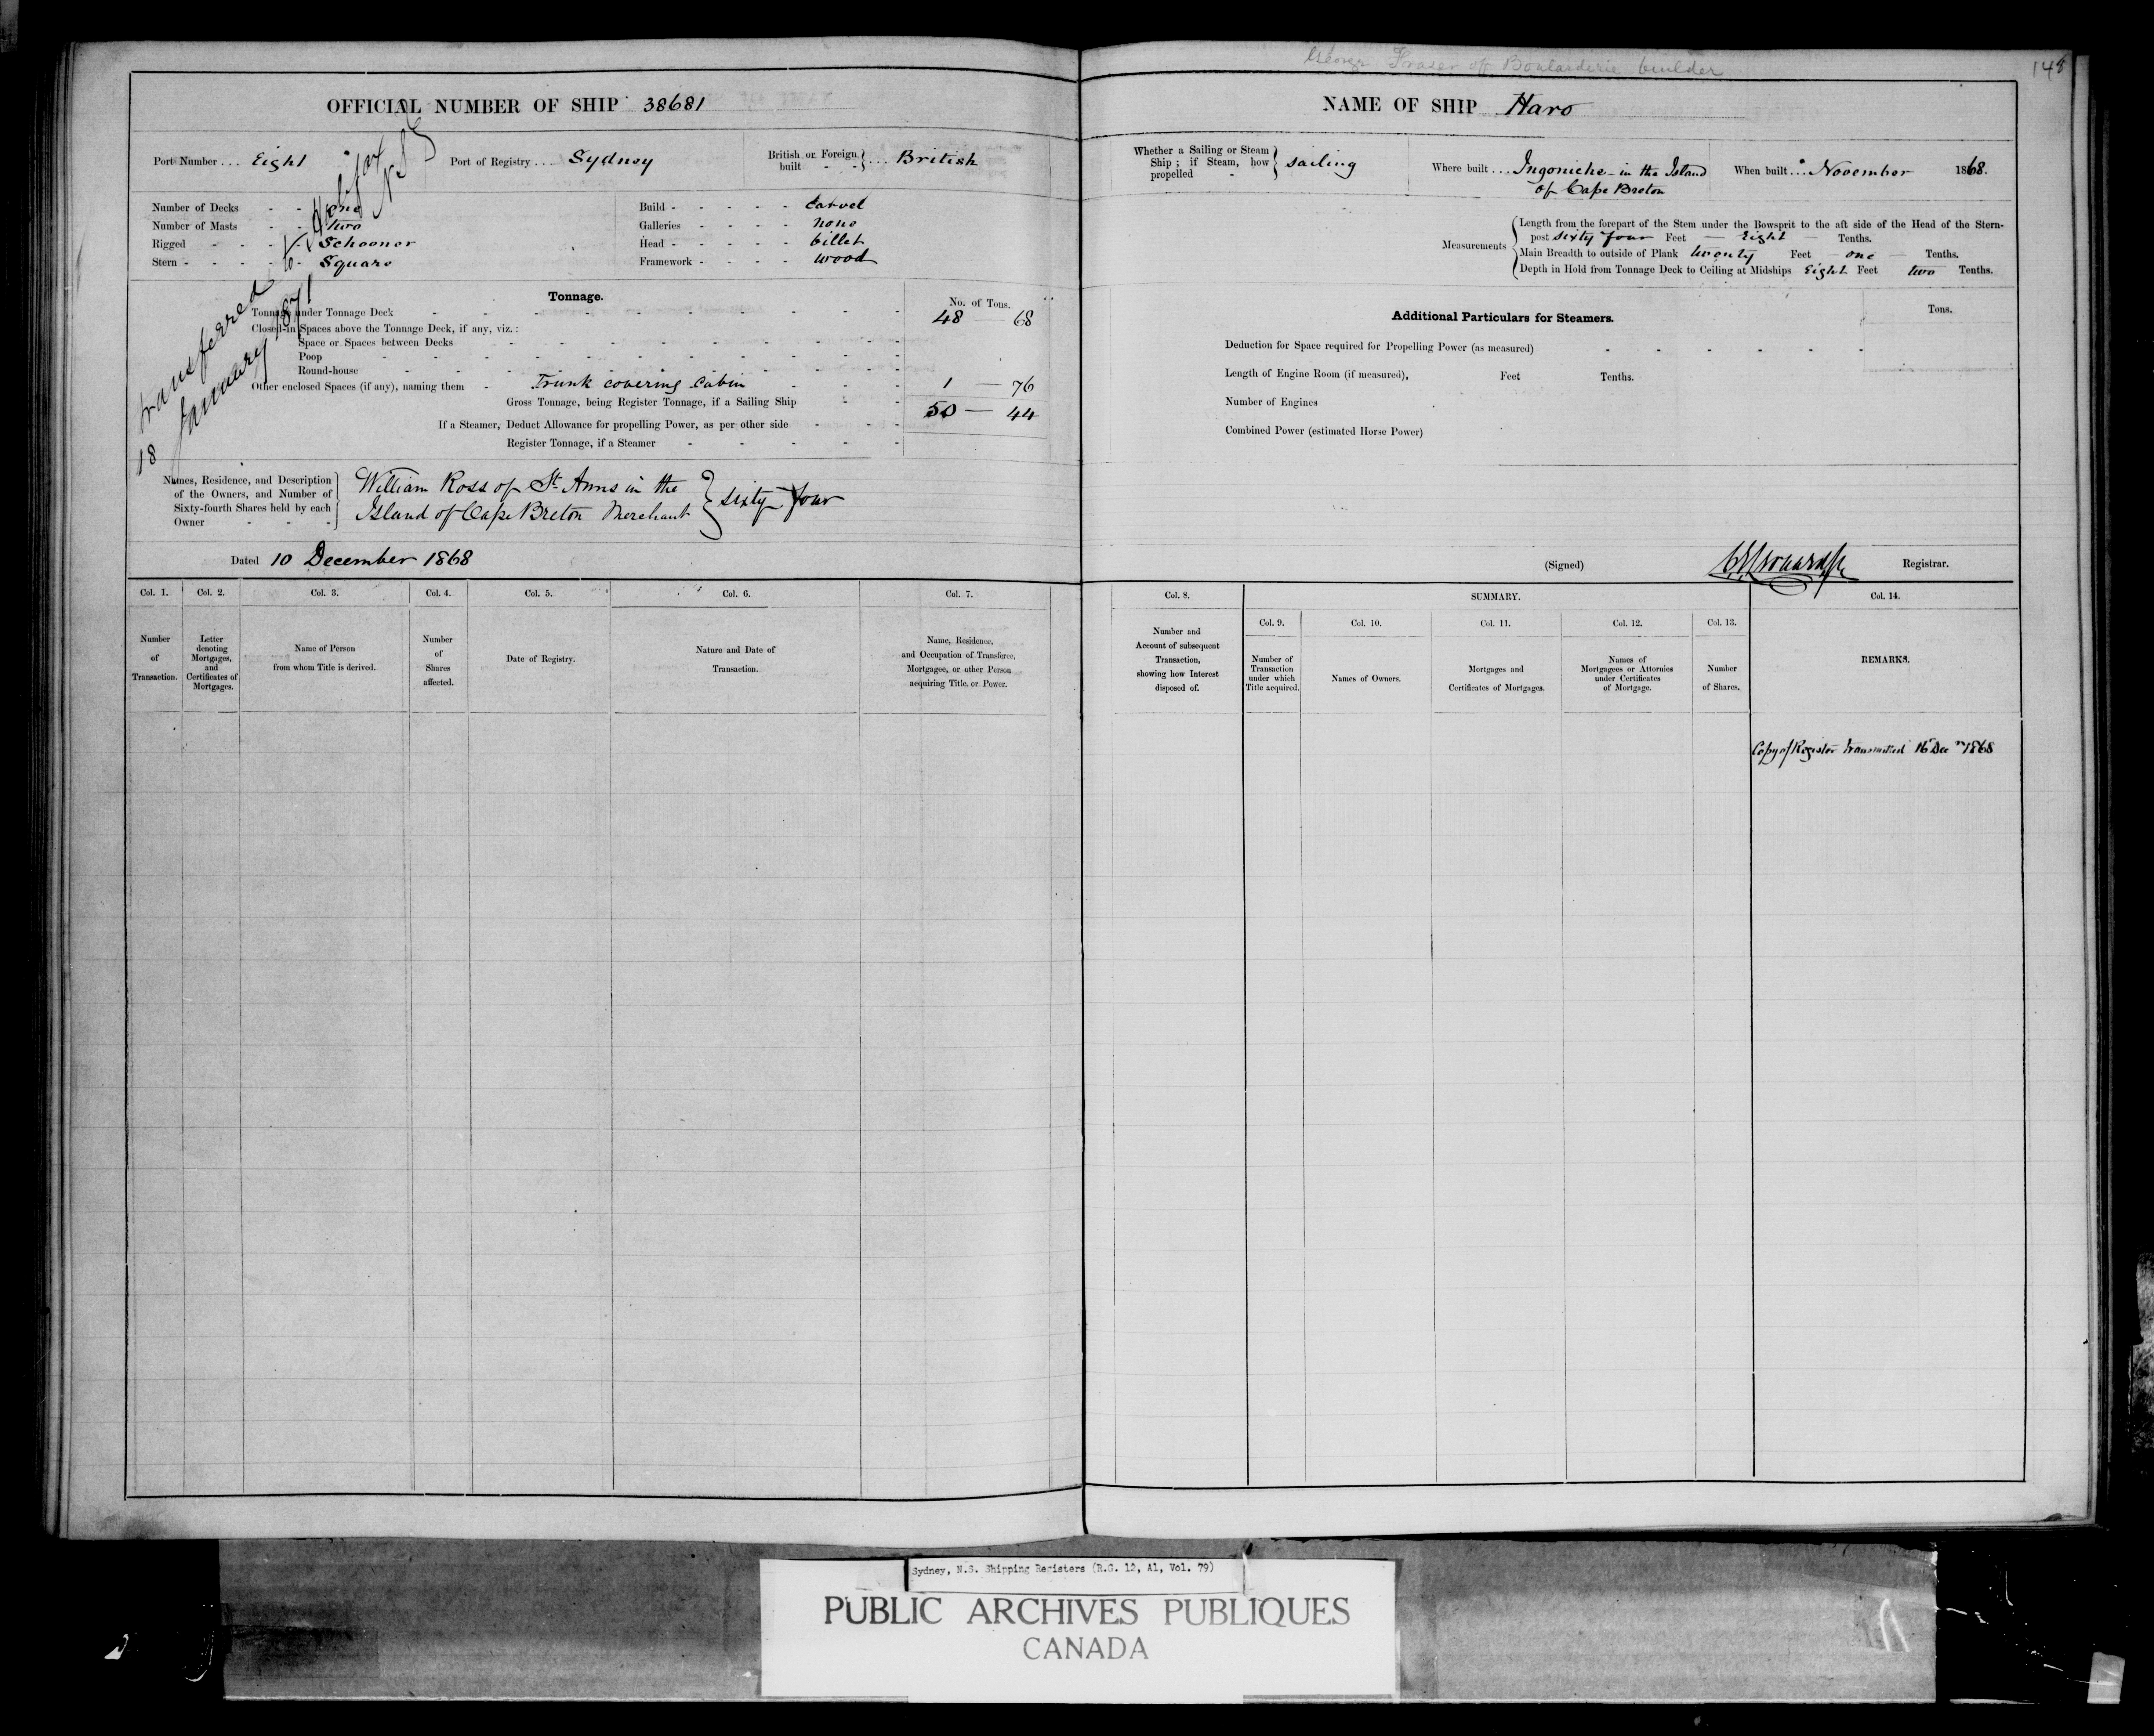 George Fraser of Boularderie builder
148
OFFICIAL NUMBER OF SHIP 38681
Port Number ... Eight
Port of Registry .... Sydney
British or Foreign built - - } ... British
Number of Decks - - One
Number of Masts - - Two
Rigged - - - Schooner
Stern - - - - Square
Build - - - - - Carvel
Galleries - - - - none
Head - - - - - billet
Framework - - - - wood
transferred to Halifax N S
18 January 1871
Tonnage.
No. of Tons.
Tonnage under Tonnage Deck 48 — 68
Closed-in Spaces above the Tonnage Deck, if any, viz.:
Space or Spaces between Decks
Poop
Round-house
Other enclosed Spaces (if any), naming them - Trunk covering Cabin 1 — 76
Gross Tonnage, being Register Tonnage, if a Sailing Ship 50 — 44
If a Steamer, Deduct Allowance for propelling Power, as per other side
Register Tonnage, if a Steamer
Names, Residence, and Description of the Owners, and Number of Sixty-fourth Shares held by each Owner
William Ross of St. Anns in the
Island of Cape Breton Merchant } sixty four
Dated 10 December 1868
Col. 1. Number of Transaction.
Col. 2. Letter denoting Mortgages, and Certificates of Mortgages.
Col. 3. Name of Person from whom Title is derived.
Col. 4. Number of Shares affected.
Col. 5. Date of Registry.
Col. 6. Nature and Date of Transaction.
Col. 7. Name, Residence, and Occupation of Transferee, Mortgagee, or other Person acquiring Title or Power.
NAME OF SHIP Haro
Whether a Sailing or Steam Ship; if Steam, how propelled - } sailing
Where built ... Ingoniche - in the Island
of Cape Breton
When built ... November 1868.
Measurements
Length from the forepart of the Stem under the Bowsprit to the aft side of the Head of the Stern-
post sixty four Feet — Eight — Tenths.
Main Breadth to outside of Plank twenty Feet — one — Tenths.
Depth in Hold from Tonnage Deck to Ceiling at Midships Eight Feet two Tenths.
Additional Particulars for Steamers.
Tons.
Deduction for Space required for Propelling Power (as measured)
Length of Engine Room (if measured), Feet Tenths.
Number of Engines
Combined Power (estimated Horse Power)
(Signed) Registrar.
Col. 8. Number and Account of subsequent Transaction, showing how Interest disposed of.
SUMMARY.
Col. 9. Number of Transaction under which Title acquired.
Col. 10. Names of Owners.
Col. 11. Mortgages and Certificates of Mortgages.
Col. 12. Names of Mortgagees or Attornies under Certificates of Mortgage.
Col. 13. Number of Shares.
Col. 14. REMARKS.
Copy of Register transmitted 16 Dec 1868
Sydney, N.S. Shipping Registers (R.G. 12, A1, Vol. 79)
PUBLIC ARCHIVES PUBLIQUES
CANADA